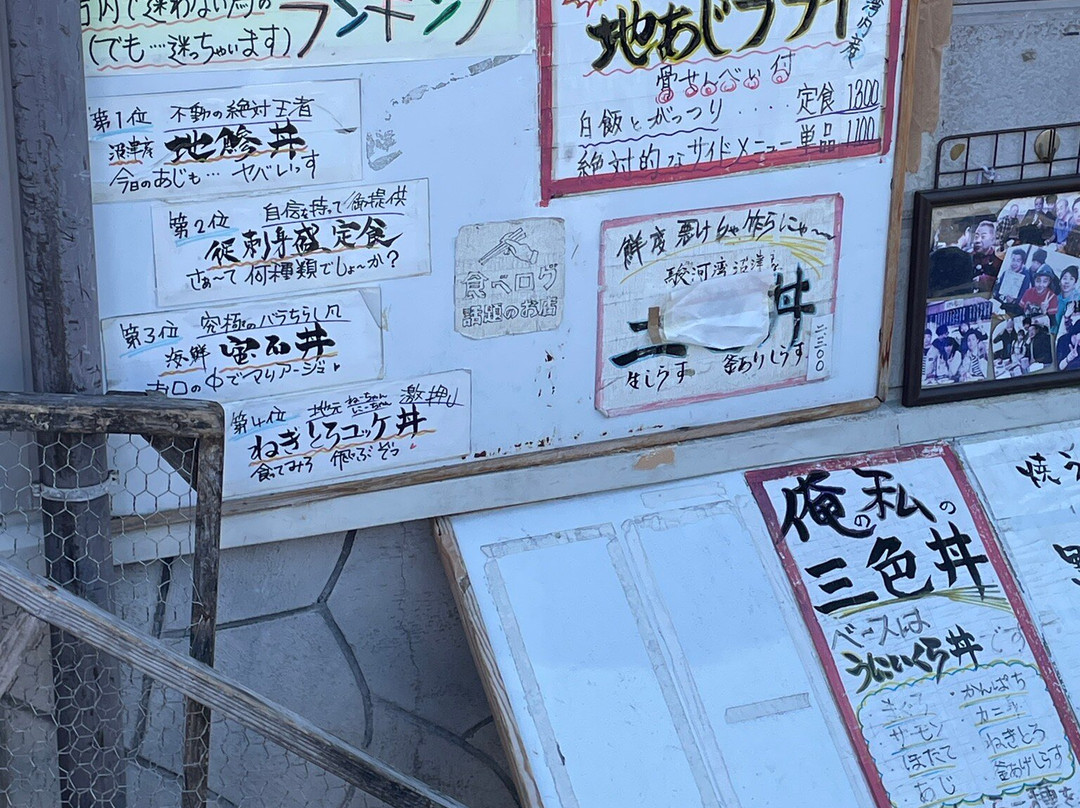 内で迷わない為の
(でも…迷っちゃいます)
ランキング
第1位 不動の絶対王者
沼津産 地鯵丼
今日のあじも… ヤバいっす
第2位 自信を持って御提供
刺身盛定食
さぁ〜て 何種類でしょ〜か?
第3位 究極のバラちらし
海鮮 宝石丼
お口の中でマリアージュ
第4位 地元 ねーちゃん にーちゃん 激押し
ねぎとろユッケ丼
食ってみろ 飛ぶぞっ
食べログ
話題のお店
地あじフライ
骨せんべい付
白飯とがっつり・・・・ 定食 1300
絶対的なサイドメニュー 単品 1100
鮮度 悪けりゃ 作らにゃ〜
駿河湾沼津産
丼
生しらす 釜ありしらす
二三〇〇
俺の私の
三色丼
ベースは
うにいくら丼
です
サーモン
ほたて
あじ
・かんぱち
・カニ
・ねぎとろ
釜あげしらす
焼